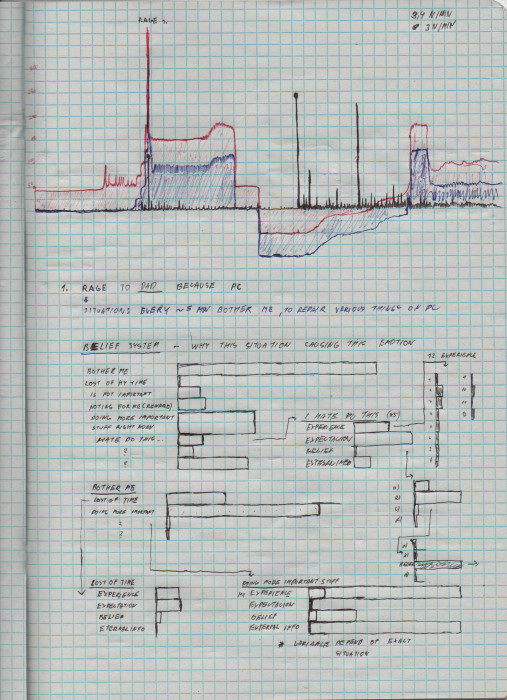 RAGE 1.
3,4 N/MIN
3 N/MIN
1. RAGE TO DAD BECAUSE PC
&
SITUATIONS EVERY ~5 MIN BOTHER ME, TO REPAIR VARIOUS THINGS OF PC
BELIEF SYSTEM - WHY THIS SITUATION CAUSING THIS EMOTION
BOTHER ME
LOST OF MY TIME
IS NOT IMPORTANT
NOTING FOR ME (REWARD)
DOING MORE IMPORTANT
STUFF RIGHT NOW
HATE DO THIS...
?
I HATE DO THIS
EXPERIENCE
EXPECTATION
BELIEF
EXTERNAL INFO
EXPERIENCE
BOTHER ME
LOST OF TIME
DOING MORE IMPORTANT
?
LOST OF TIME
EXPERIENCE
EXPECTATION
BELIEF
ETERNAL INFO
DOING MORE IMPORTANT STUFF
MY EXPERIENCE
EXPECTATION
BELIEF
EXTERNAL INFO
* VARIABLE DEPEND OF EXACT
SITUATION